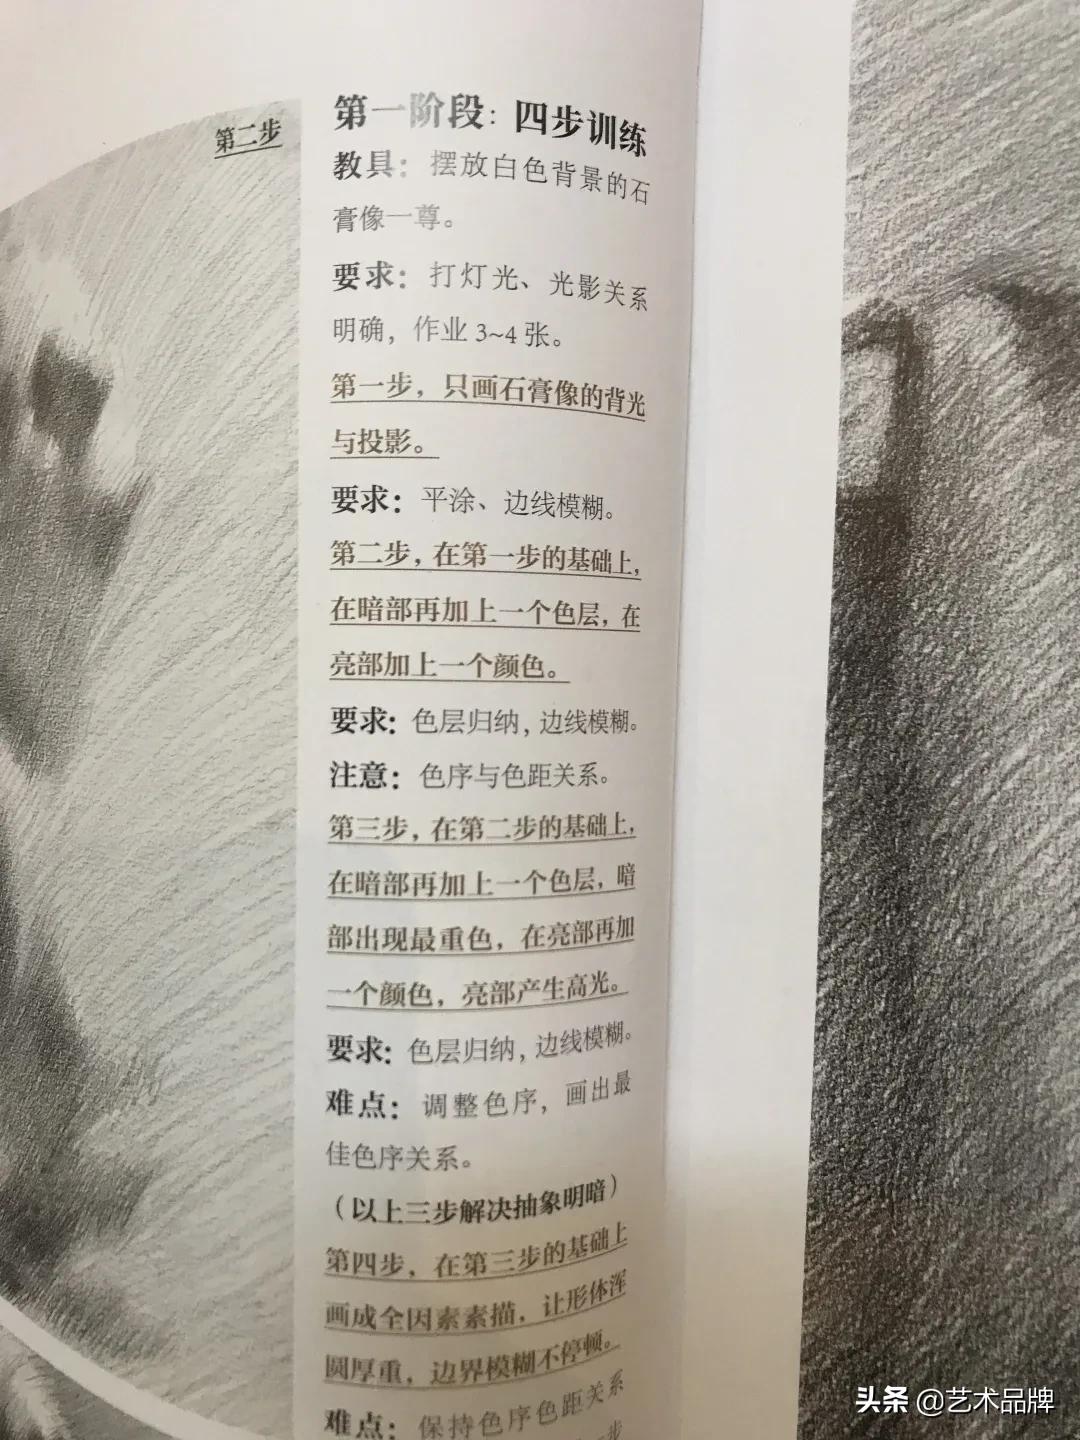 第二步
第一阶段：四步训练
教具：摆放白色背景的石
膏像一尊。
要求：打灯光、光影关系
明确，作业3~4张。
第一步，只画石膏像的背光
与投影。
要求：平涂、边线模糊。
第二步，在第一步的基础上，
在暗部再加上一个色层，在
亮部加上一个颜色。
要求：色层归纳，边线模糊。
注意：色序与色距关系。
第三步，在第二步的基础上，
在暗部再加上一个色层，暗
部出现最重色，在亮部再加
一个颜色，亮部产生高光。
要求：色层归纳，边线模糊。
难点：调整色序，画出最
佳色序关系。
（以上三步解决抽象明暗）
第四步，在第三步的基础上
画成全因素素描，让形体浑
圆厚重，边界模糊不停顿。
难点：保持色序色距关系
头条 @艺术品牌